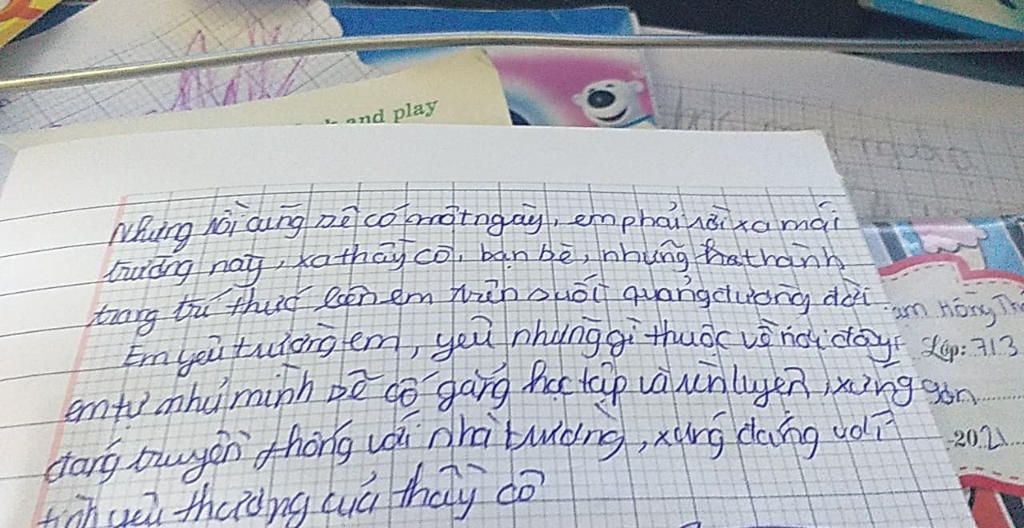 and play
Nhưng rồi cũng sẽ có một ngày, em phải rời xa mái
trường này, xa thầy cô, bạn bè, những hành
trang trí thức bên em trên suốt quảng đường đời
Em yêu trường em, yêu những gì thuộc về nơi đây.
em tự nhủ mình sẽ cố gắng học tập và rèn luyện, xứng
đáng truyền thống với nhà trường, xứng đáng với
tình yêu thương của thầy cô
Hồng
Lớp: 713
2021